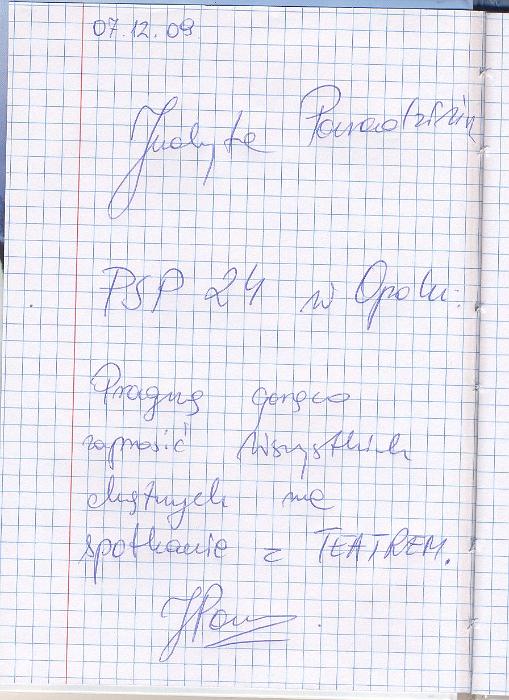 07.12.09
Judyta Paradzińs
PSP 24 w Opolu:
Pragnę gorąco
zaprosić wszystkich
chętnych na
spotkanie z TEATREM.
JPar